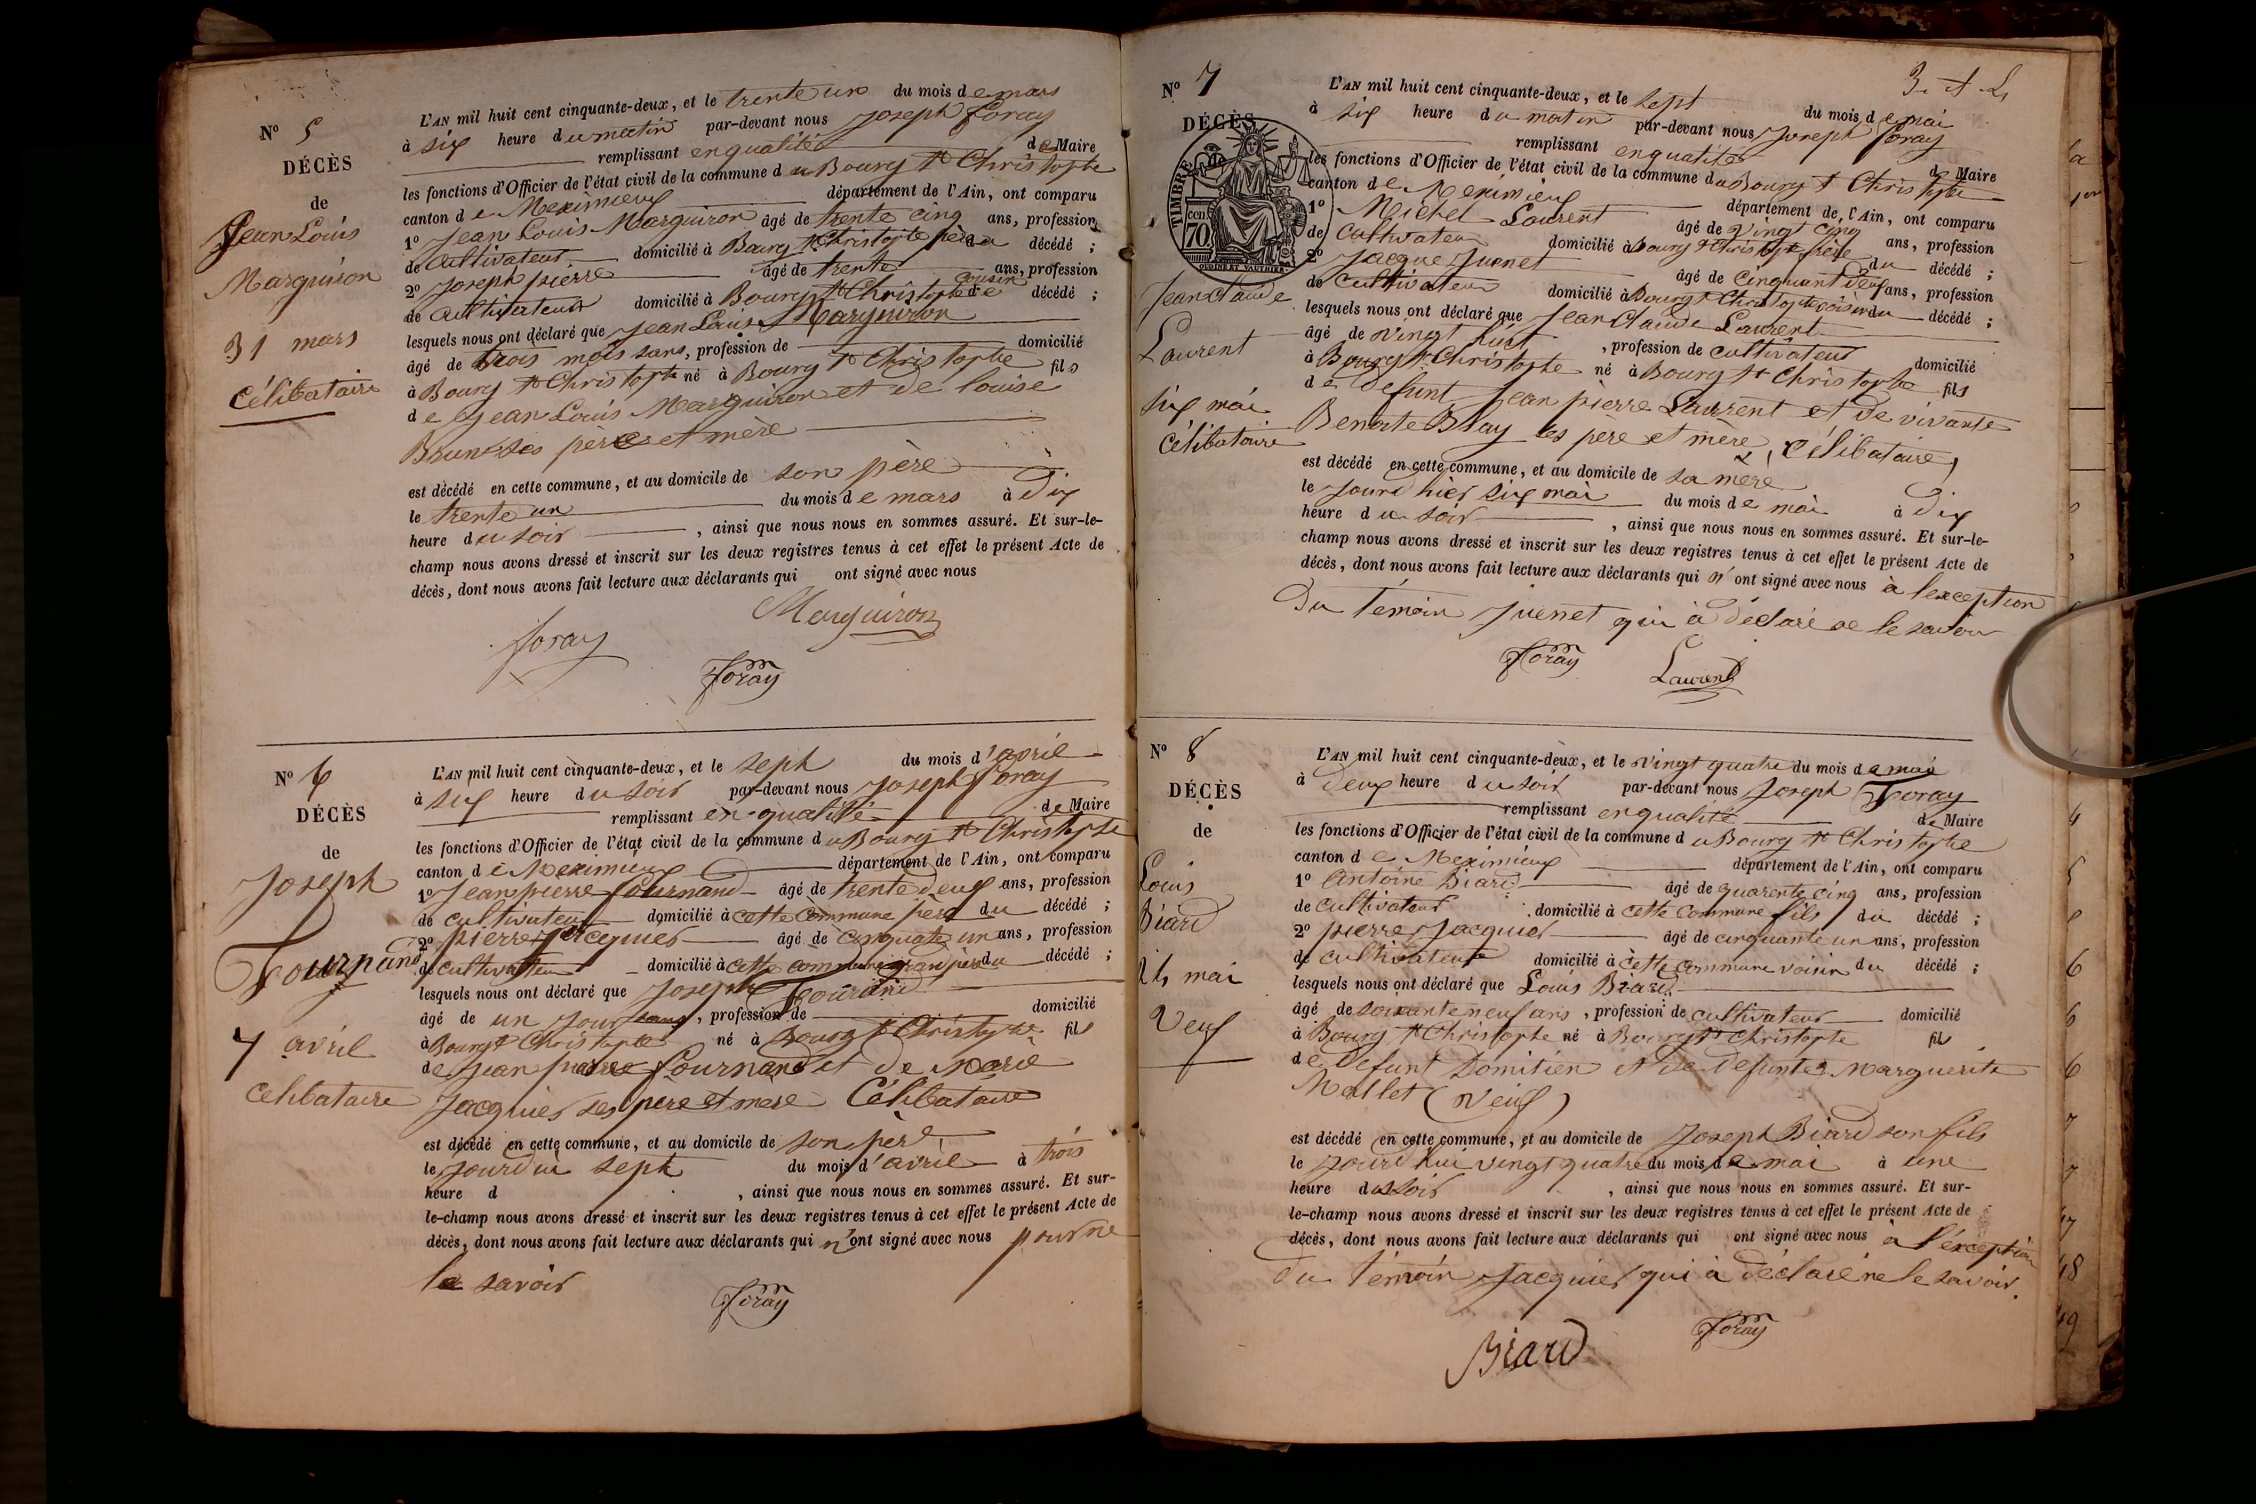 N° 5
DÉCÈS
de
Jean Louis
Marguiron
31 mars
Célibataire
L'AN mil huit cent cinquante-deux, et le trente un du mois de mars
à six heure du matin par-devant nous Joseph Foray
remplissant en qualité de Maire
les fonctions d'Officier de l'état civil de la commune du Bourg St Christophe
canton de Meximieux département de l'Ain, ont comparu
1° Jean Louis Marguiron âgé de trente cinq ans, profession
de cultivateur domicilié à Bourg St Christophe père du décédé ;
2° Joseph pierre âgé de trente ans, profession
cousin
de cultivateur domicilié à Bourg St Christophe de décédé ;
lesquels nous ont déclaré que Jean Louis Marguiron
âgé de trois mois sans, profession de domicilié
à Bourg St Christophe né à Bourg St Christophe fils
de Jean Louis Marguiron et de Louise
Brun ses père et mère
est décédé en cette commune, et au domicile de son père
le trente un du mois de mars à dix
heure du soir , ainsi que nous nous en sommes assuré. Et sur-le-
champ nous avons dressé et inscrit sur les deux registres tenus à cet effet le présent Acte de
décès, dont nous avons fait lecture aux déclarants qui ont signé avec nous
Marguiron
foray
Foray
N° 6
DÉCÈS
de
Joseph
Fournand
7 avril
Celibataire
L'AN mil huit cent cinquante-deux, et le sept du mois d'avril
à six heure du soir par-devant nous Joseph Foray
remplissant en qualité de Maire
les fonctions d'Officier de l'état civil de la commune du Bourg St Christophe
canton de Meximieux département de l'Ain, ont comparu
1° Jean pierre fournand âgé de trente deux ans, profession
de cultivateur domicilié à cette commune père du décédé ;
2° pierre Jacquier âgé de cinquante un ans, profession
de cultivateur domicilié à cette commune grand père du décédé ;
lesquels nous ont déclaré que Joseph
âgé de un jour sans, profession de domicilié
à Bourg St Christophe né à Bourg St Christophe fils
de Jean pierre fournand et de Marie
Jacquier ses père et mère Célibataire
est décédé en cette commune, et au domicile de son père
le jourdui sept du mois d'avril à trois
heure d , ainsi que nous nous en sommes assuré. Et sur-
le-champ nous avons dressé et inscrit sur les deux registres tenus à cet effet le présent Acte de
décès, dont nous avons fait lecture aux déclarants qui n'ont signé avec nous pour ne
le savoir
Foray
N° 7
DÉCÈS
de
TIMBRE
cen
70.
OUDINÉ ET VAUTHIER
Jean Claude
Laurent
six mai
Célibataire
L'AN mil huit cent cinquante-deux, et le sept du mois de mai
à six heure du matin par-devant nous Joseph Foray
remplissant en qualité de Maire
les fonctions d'Officier de l'état civil de la commune du Bourg St Christophe
canton de Meximieux département de l'Ain, ont comparu
1° Michel Laurent âgé de vingt cinq ans, profession
de cultivateur domicilié à Bourg St Christophe frère du décédé ;
2° Jacque Juenet âgé de cinquant deux ans, profession
de cultivateur domicilié à Bourg St Christophe voisin du décédé ;
lesquels nous ont déclaré que Jean Claude Laurent
âgé de vingt huit , profession de cultivateur domicilié
à Bourg St Christophe né à Bourg St Christophe fils
de défunt Jean pierre Laurent et de vivante
Benoite Blay les père et mère, célibataire,
est décédé en cette commune, et au domicile de sa mère
le jourd'hier six mai du mois de mai à dix
heure du soir , ainsi que nous nous en sommes assuré. Et sur-le-
champ nous avons dressé et inscrit sur les deux registres tenus à cet effet le présent Acte de
décès, dont nous avons fait lecture aux déclarants qui n'ont signé avec nous à l'exception
du témoin Juenet qui à déclaré ne le savoir
Foray
Laurent
N° 8
DÉCÈS
de
Louis
Biard
24 mai
Veuf
L'AN mil huit cent cinquante-deux, et le vingt quatre du mois de mai
à deux heure du soir par-devant nous Joseph Foray
remplissant en qualité de Maire
les fonctions d'Officier de l'état civil de la commune du Bourg St Christophe
canton de Meximieux département de l'Ain, ont comparu
1° Antoine Biard âgé de quarente cinq ans, profession
de cultivateur domicilié à cette commune fils du décédé ;
2° pierre Jacquier âgé de cinquante un ans, profession
de cultivateur domicilié à cette commune voisin du décédé ;
lesquels nous ont déclaré que Louis Biard
âgé de soixante neuf ans, profession de cultivateur domicilié
à Bourg St Christophe né à Bourg St Christophe fils
de défunt Domitien et de defunte Marguerite
Mallet (veuf)
est décédé en cette commune, et au domicile de Joseph Biard son fils
le jourd'hui vingt quatre du mois de mai à une
heure du soir , ainsi que nous nous en sommes assuré. Et sur-
le-champ nous avons dressé et inscrit sur les deux registres tenus à cet effet le présent Acte de
décès, dont nous avons fait lecture aux déclarants qui ont signé avec nous à l'exception
du témoin Jacquier qui à déclaré ne le savoir.
Foray
Biard